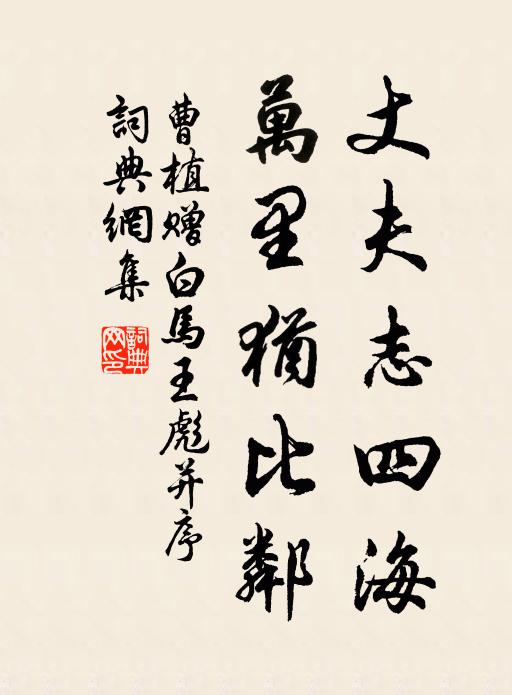 丈夫志四海
萬里猶比鄰
曹植贈白馬王彪并序
詞典網集
詞典網印